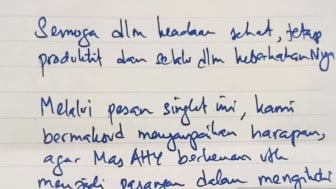 Semoga dlm keadaan sehat, tetap
produktif dan selalu dlm keberkahanNya
Melalui pesan singkat ini, kami
bermaksud menyampaikan harapan,
agar Mas AHY berkenan utk
menjadi pasangan dalam mengikuti